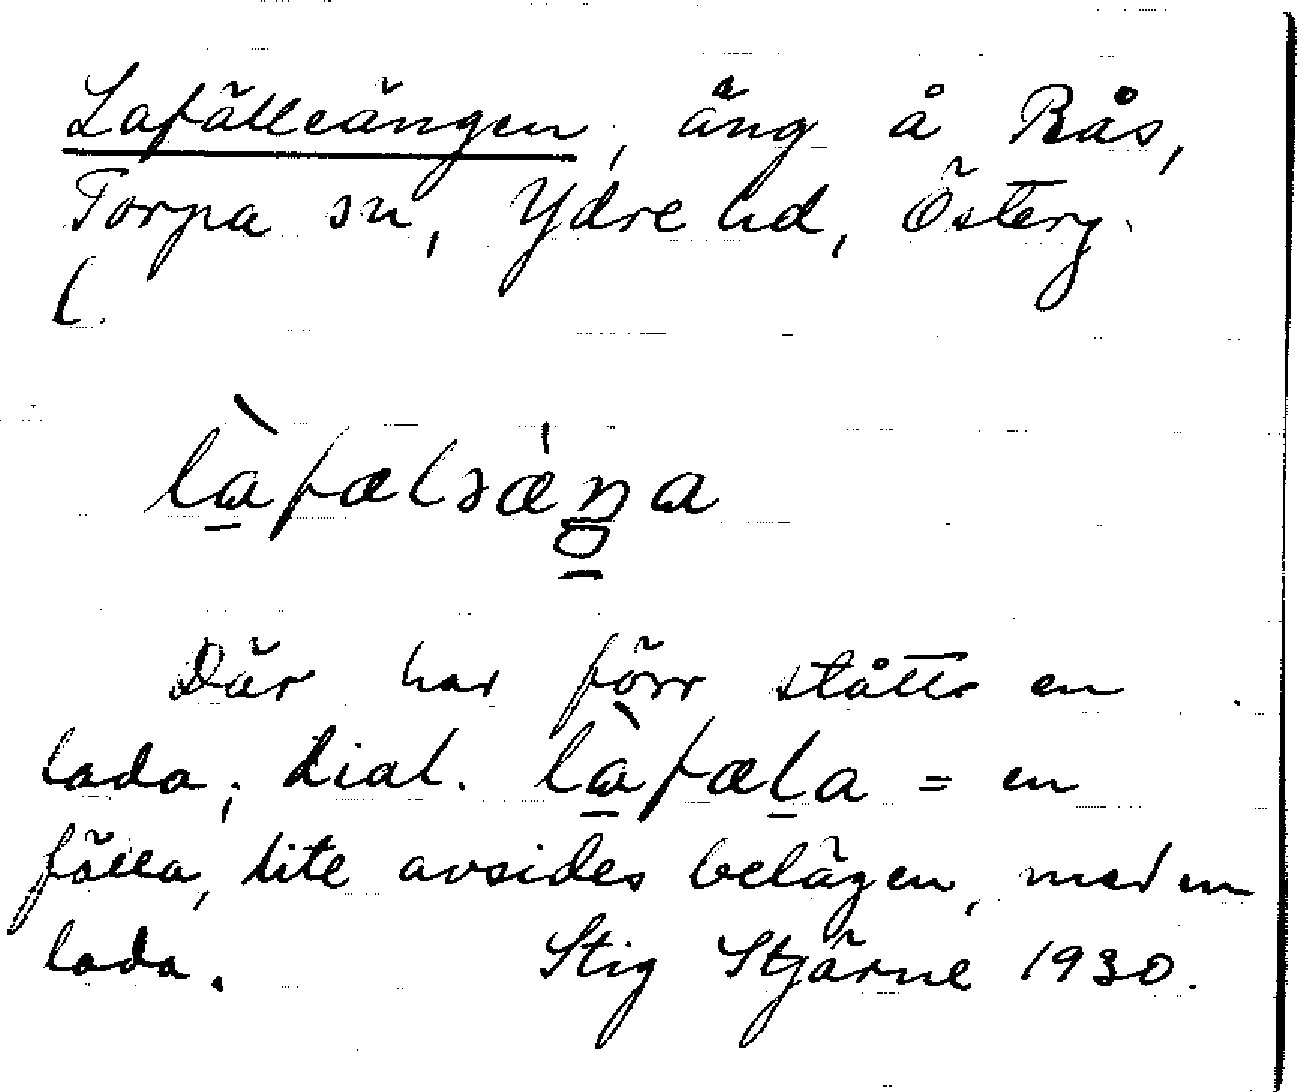 Lafälleängen, äng å Rås,
Torpa sn, Ydre hd, Österg.
l.
là̱fælsæ̀ŋa
Där har förr stått en
lada; dial. là̱fæḻa = en
fålla, lite avsides belägen, med en
lada. Stig Stjärne 1930.